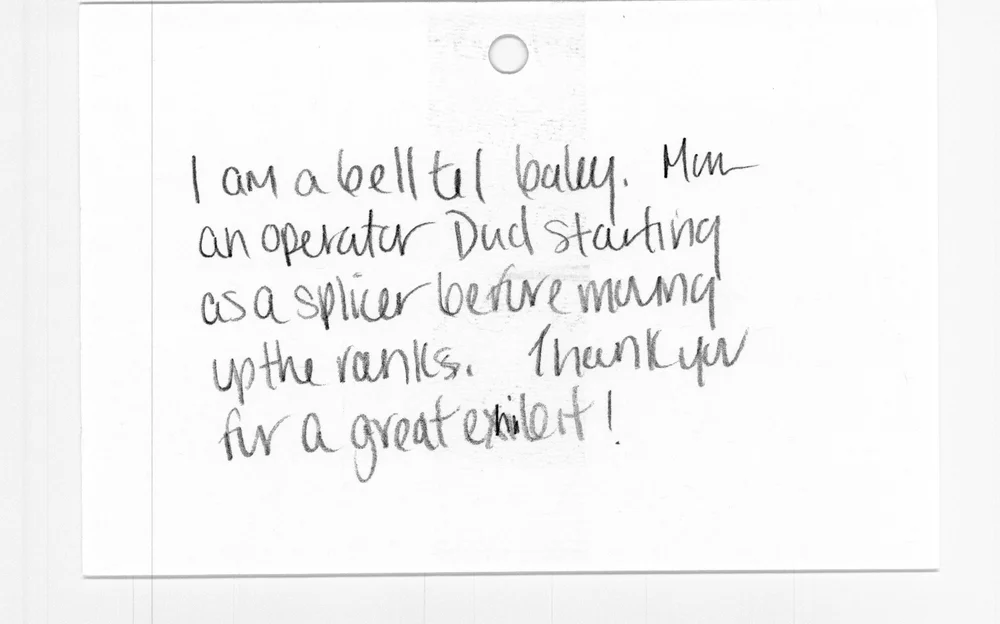 I am a bell tel baby. Mom
an operator Dad starting
as a splicer before moving
up the ranks. Thank you
for a great exhibit!